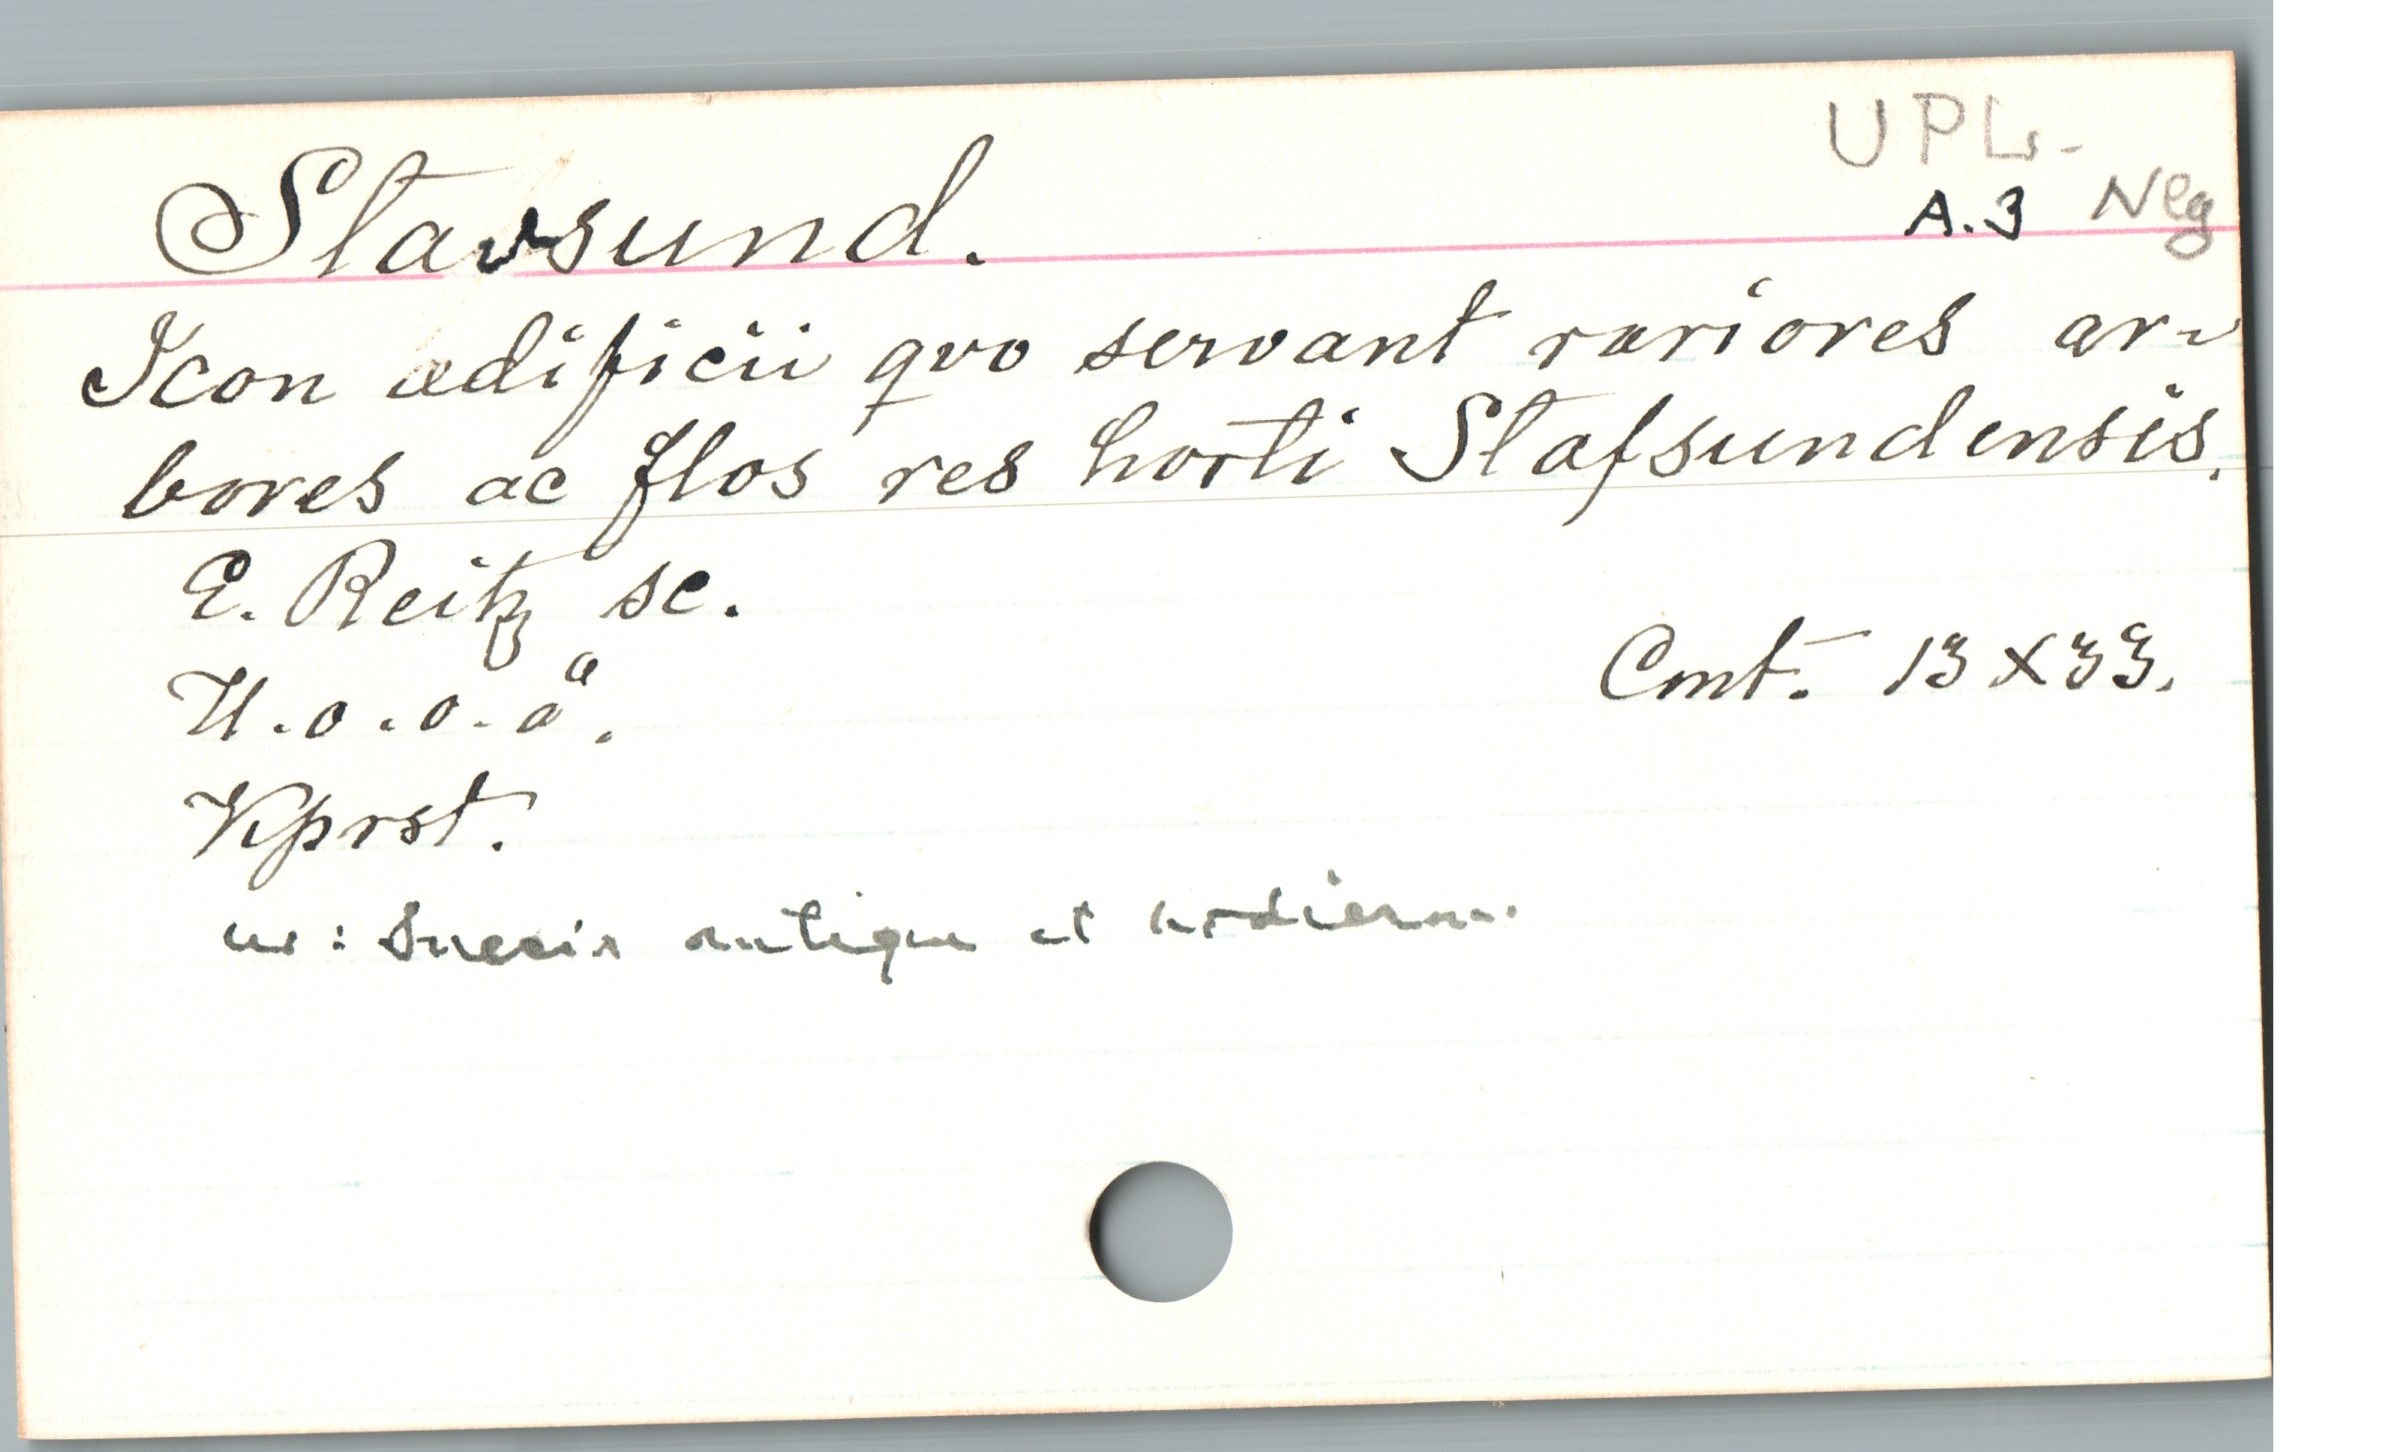 UPL.
Stavsund.
A.3 Neg
Icon ædificii qvo servant rariores ar-
bores ac flos res horti Stafsundensis.
E. Reitz sc.
U.o.o.å.
Cmt. 13 X 33.
Kprst.
ur: Suecia antiqua et hodierna.